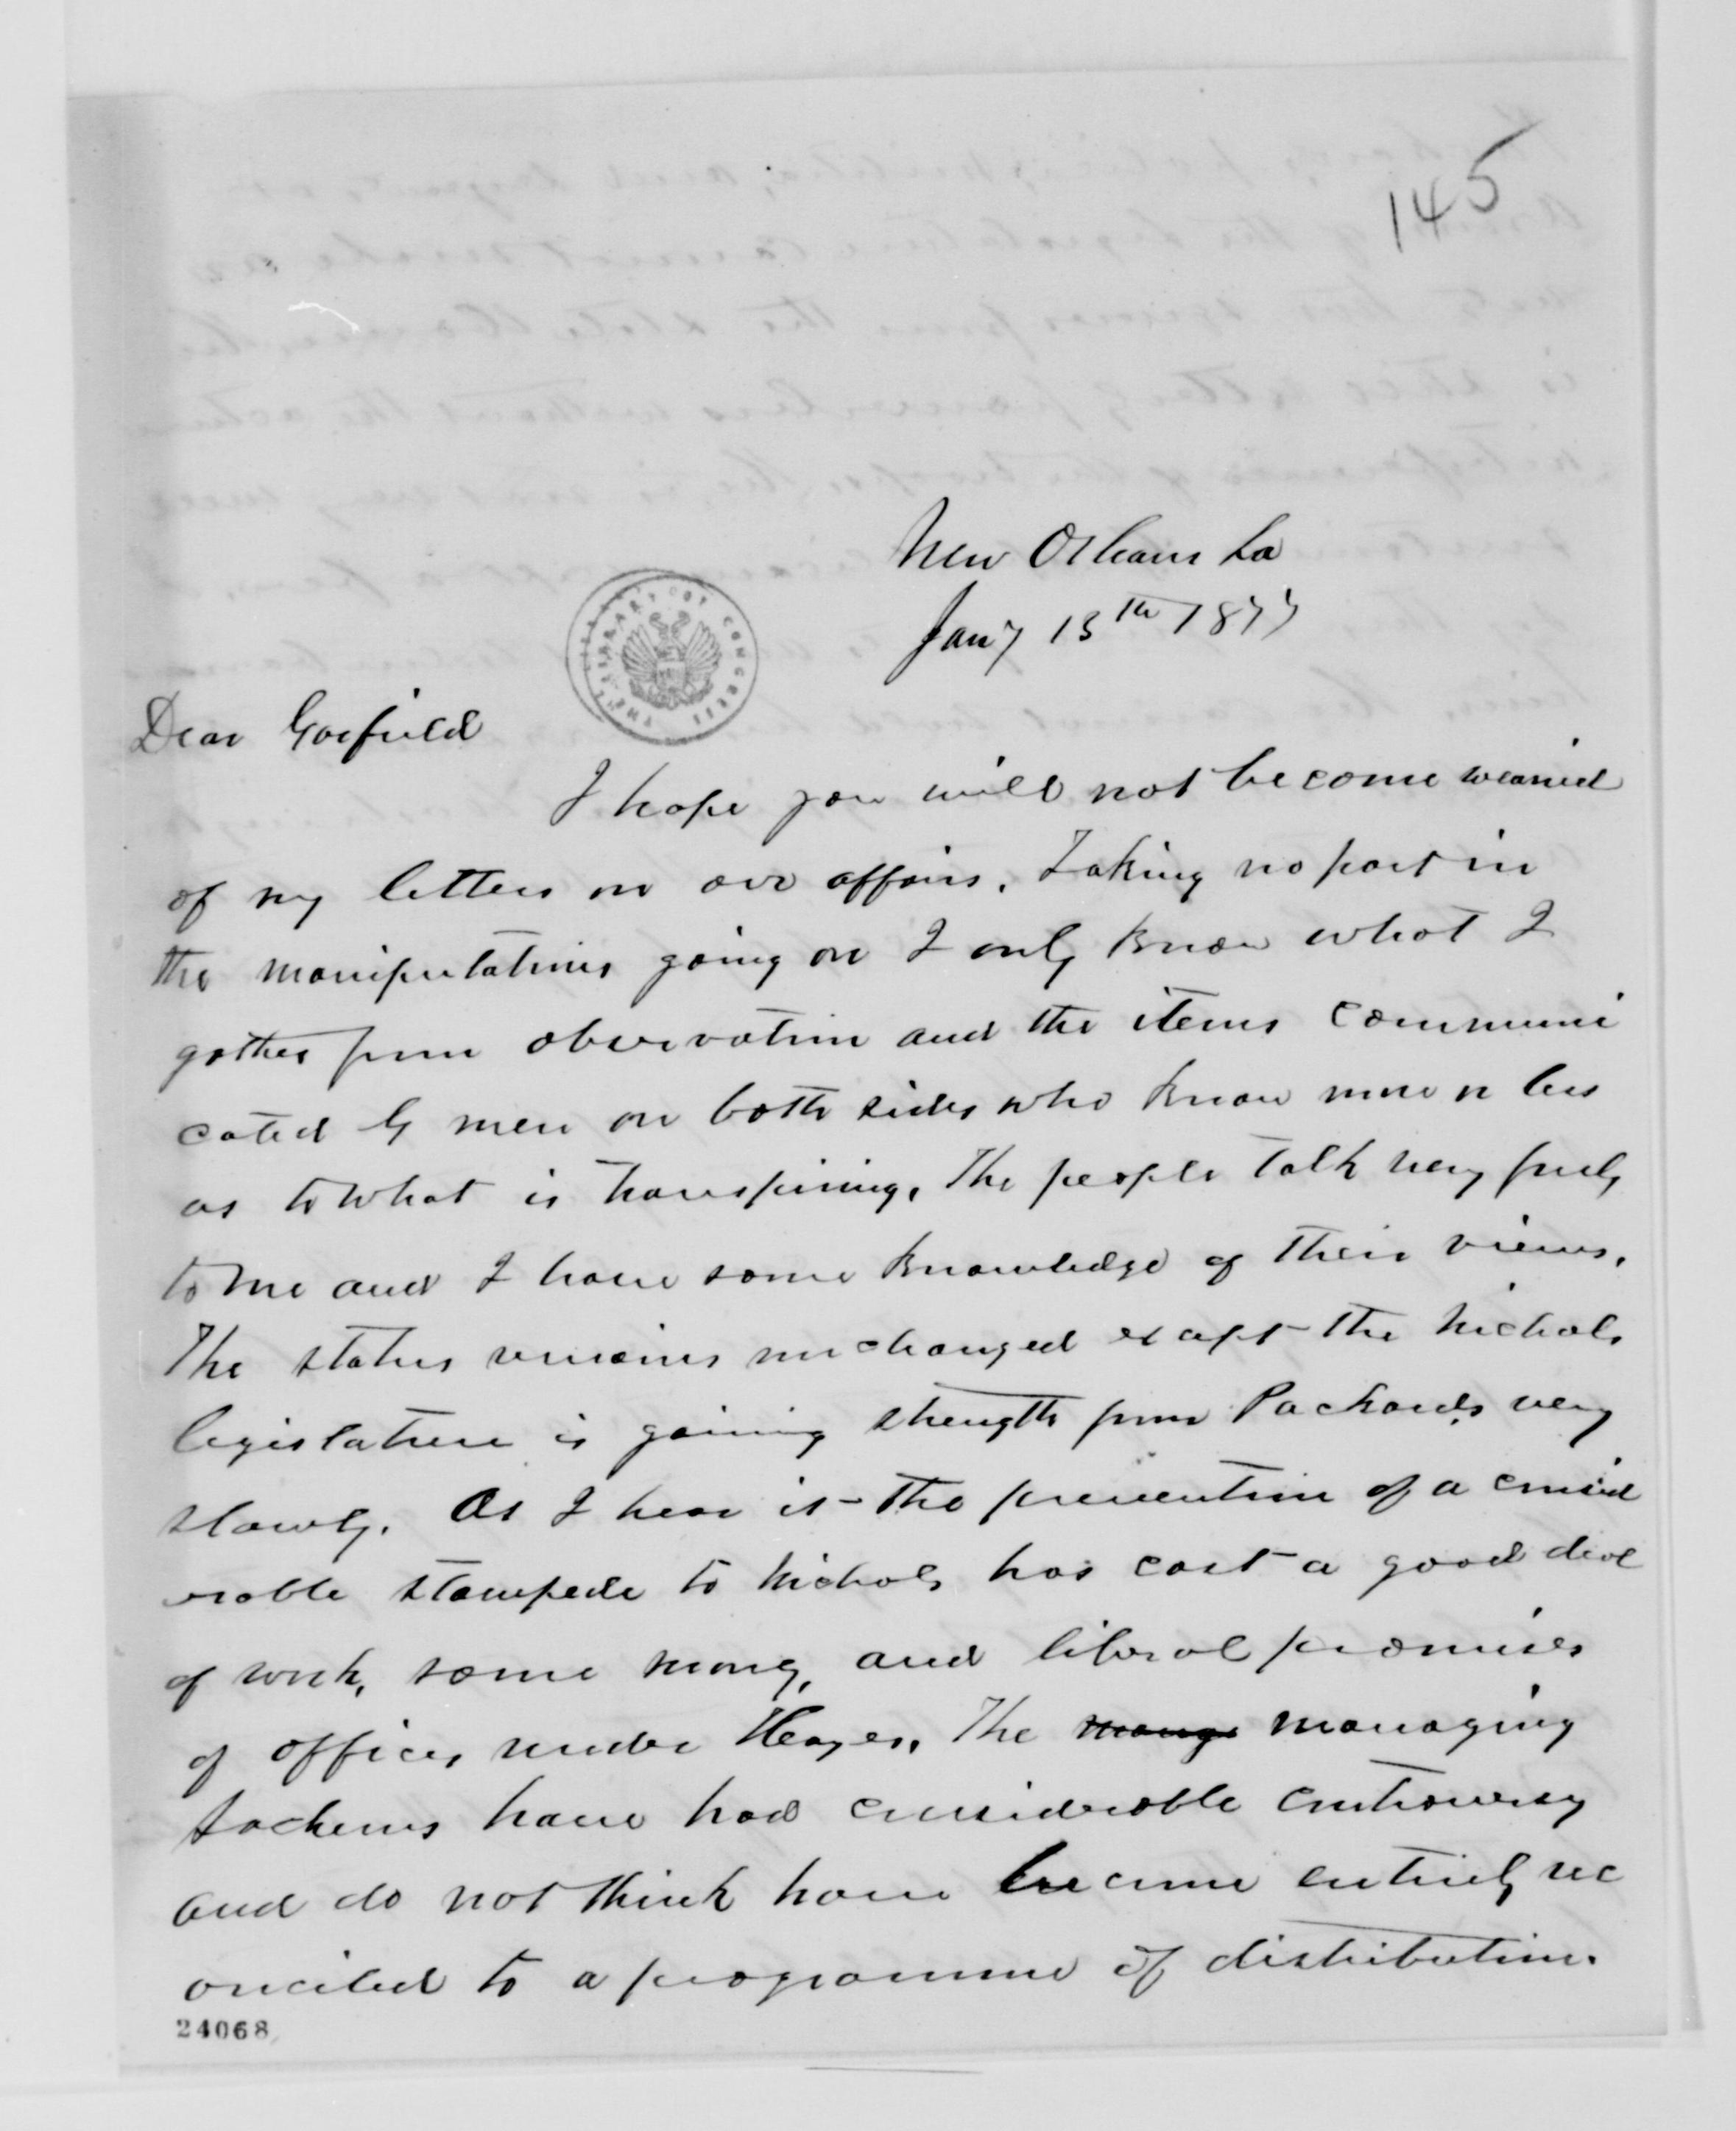 145
New Orleans La
Jany 13th 1877
THE LIBRARY OF CONGRESS
Dear Garfield
I hope you will not become wearied
of my letters on our affairs. Taking no part in
the manipulations going on I only know what I
gather from observation and the items communi
cated by men on both sides who know more or less
as to what is transpiring. The people talk very freely
to me and I have some knowledge of their views.
The status remains unchanged except the Nichols
legislature is gaining strength from Packards very
slowly. As I hear it the prevention of a consid
erable stampede to Nichols has cost a good deal
of work, some money, and liberal promises
of offices under Hayes. The mange managing
Sachems have had considerable controversy
and do not think have become entirely rec
onciled to a programme of distribution.
24068